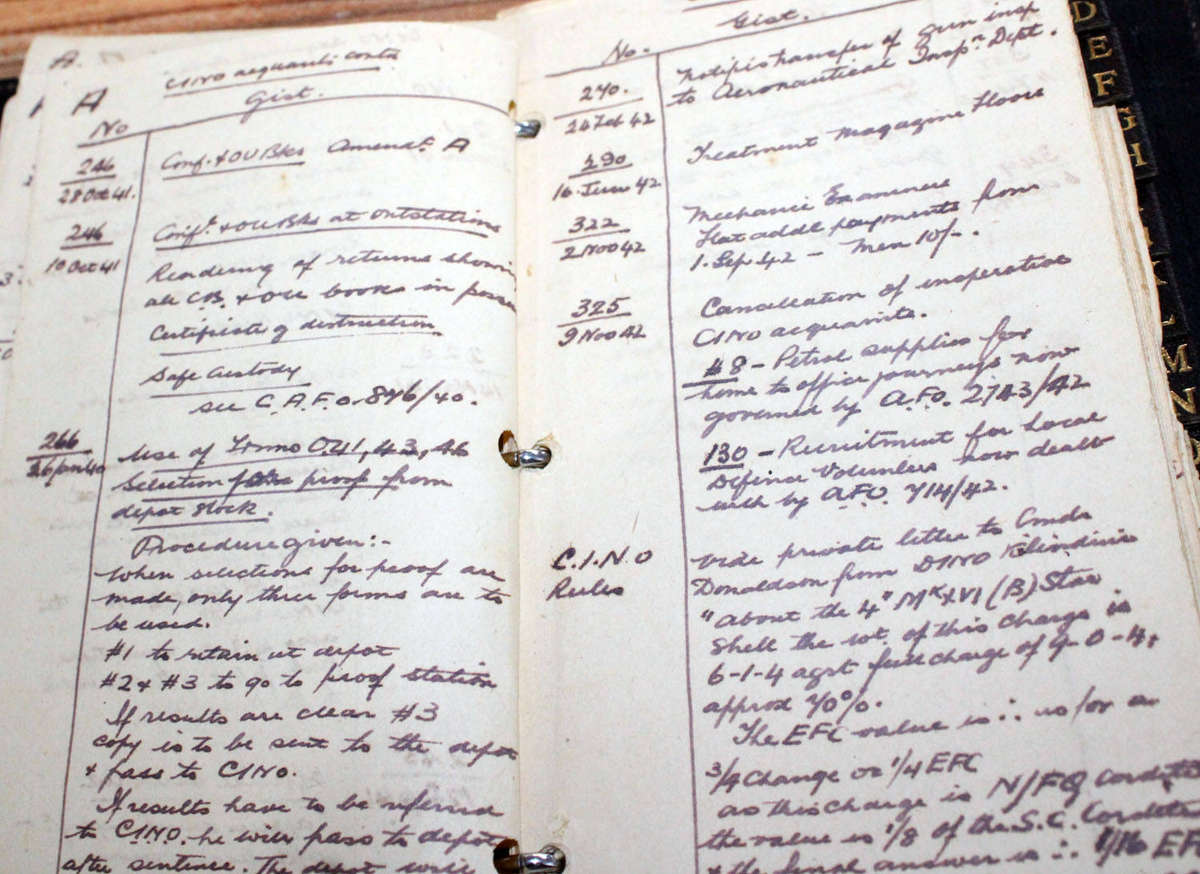 A
CINO acquaints contd
No
Gist.
246
28 Oct 41.
Conf. & OU Bks Amendt. A
246
10 Oct 41
Conf. & OU Bks at Outstations
Rendering of returns showin
all CB. & OU books in posses
Certificate of destruction
Safe Custody
see C.A.F.O. 846/40.
266
Use of Forms O.41, 43, 46
Selection for proof from
depot stock.
Procedure given:-
When selections for proof are
made, only three forms are to
be used.
#1 to retain at depot
#2 & #3 to go to proof station
If results are clear #3
copy is to be sent to the depot
& pass to CINO.
If results have to be referred
to C.I.N.O. he will pass to depot
after sentence. The depot will
No.
Gist.
270.
24 Feb 42
Notifies transfer of Gun insp
to Aeronautical Inspn Dept.
290
16. June 42
Treatment Magazine Floors
322
2 Nov 42
Mechanic Examiners
Flat addl payments from
1. Sep. 42 – Men 10/-.
325
9 Nov 42
Cancellation of inoperative
CINO acquaints.
#8 – Petrol supplies for
home to office journeys now
governed by A.F.O. 2743/42
130 – Recruitment for Local
Defence Volunteers now dealt
with by A.F.O. 714/42.
C.I.N.O
Rules
Vide private letter to Cmdr
Donaldson from DINO Kilindini
"About the 4" Mk XVI (B) Star
Shell the wt. of this charge is
6-1-4 agst full charge of 9-0-4,
approx 70%.
The EFC value is ∴ as for a
3/4 Charge or 1/4 EFC
as this charge is N/FQ Cordite
the value is 1/8 of the S.C. Cordite
& the final answer is ∴ 1/16 EF
D
E
F
G
H
K
L
M
N